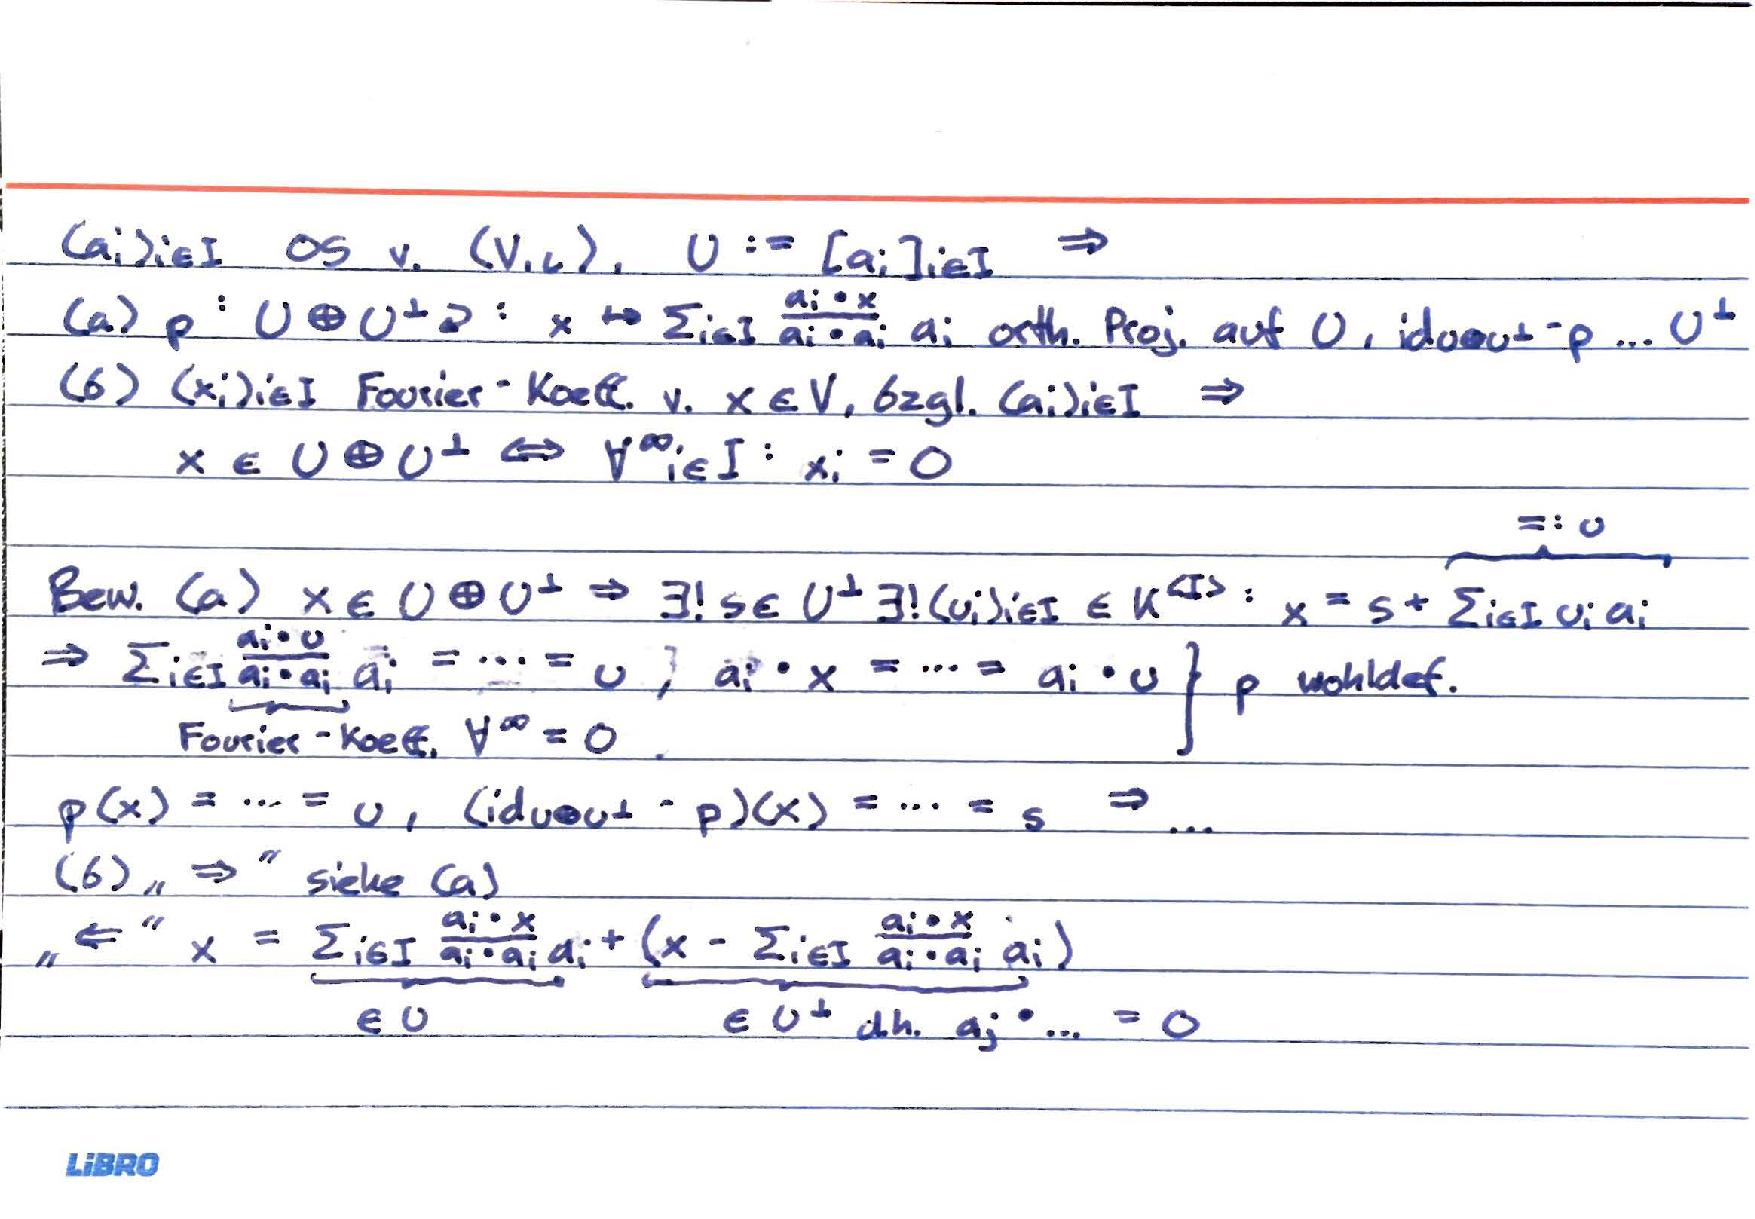 (aᵢ)ᵢ∈I OS v. (V,ι), U := [aᵢ]ᵢ∈I ⇒
(a) p : U ⊕ U^⊥ ↩ : x ↦ Σᵢ∈I (aᵢ • x)/(aᵢ • aᵢ) aᵢ orth. Proj. auf U, id_{U⊕U^⊥} - p ... U^⊥
(b) (xᵢ)ᵢ∈I Fourier-Koeff. v. x ∈ V, bzgl. (aᵢ)ᵢ∈I ⇒
x ∈ U ⊕ U^⊥ ⇔ ∀^∞ i∈I : xᵢ = 0
=: u
Bew. (a) x ∈ U ⊕ U^⊥ ⇒ ∃! s ∈ U^⊥ ∃! (uᵢ)ᵢ∈I ∈ K^{<I>} : x = s + Σᵢ∈I uᵢ aᵢ
⇒ Σᵢ∈I (aᵢ • u)/(aᵢ • aᵢ) aᵢ = ... = u ; aᵢ • x = ... = aᵢ • u } p wohldef.
Fourier-Koeff. ∀^∞ = 0
p(x) = ... = u, (id_{U⊕U^⊥} - p)(x) = ... = s ⇒ ...
(b) „⇒“ siehe (a)
„⇐“ x = Σᵢ∈I (aᵢ • x)/(aᵢ • aᵢ) aᵢ + (x - Σᵢ∈I (aᵢ • x)/(aᵢ • aᵢ) aᵢ)
∈ U ∈ U^⊥ dh. aⱼ • ... = 0
LiBRO